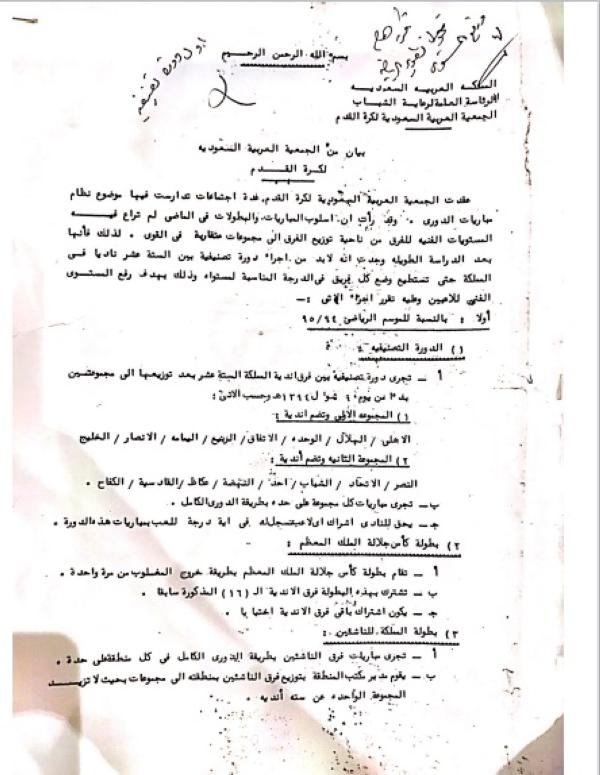 اول دورة تصنيفية
بسم الله الرحمن الرحيم
المملكه العربيه السعوديه
الرئاسة العامة لرعاية الشباب
الجمعية العربية السعودية لكرة القدم
بيان من الجمعية العربية السعوديه
لكرة القدم
عقدت الجمعية العربية السعودية لكرة القدم عدة اجتماعات تدارست فيها موضوع نظام
مباريات الدورى . وقد رأت ان اسلوب المباريات والبطولات فى الماضى لم تراع فيه
المستويات الفنيه للفرق من ناحية توزيع الفرق الى مجموعات متقاربة فى القوى . لذلك فأنها
بعد الدراسة الطويله وجدت انه لابد من اجراء دورة تصنيفية بين الستة عشر ناديا فى
المملكة حتى تستطيع وضع كل فريق فى الدرجة المناسبة لمستواه وذلك بهدف رفع المستوى
الفنى للاعبين وعليه تقرر اجراء الاتى :-
أولا : بالنسبة للموسم الرياضى ٩٥/٩٤
١) الدورة التصنيفيه :
أ - تجرى دورة تصنيفية بين فرق اندية المملكة الستة عشر بعد توزيعها الى مجموعتين
بدءا من يوم ٦ شوال ١٣٩٤هـ وحسب الاتى :
١) المجموعه الاولى وتضم اندية :
الاهلى / الهلال / الوحده / الاتفاق / الربيع / اليمامه / الانصار / الخليج
٢) المجموعة الثانيه وتضم أندية :
النصر / الاتحاد / الشباب / احد / النهضة / عكاظ / القادسية / الكفاح .
ب - تجرى مباريات كل مجموعة على حده بطريقة الدورى الكامل .
ج - يحق للنادى اشراك اى لاعب تسجل له فى اية درجة للعب بمباريات هذه الدورة .
٢) بطولة كأس جلالة الملك المعظم
أ - تقام بطولة كأس جلالة الملك المعظم بطريقة خروج المغلوب من مرة واحدة .
ب - تشترك بهذه البطولة فرق الاندية الـ (١٦) المذكورة سابقا .
ج - يكون اشتراك باقى فرق الاندية اختياريا .
٣) بطولة المملكة للناشئين :
أ - تجرى مباريات فرق الناشئين بطريقة الدورى الكامل فى كل منطقة على حدة .
ب - يقوم مدير مكتب المنطقة بتوزيع فرق الناشئين بمنطقته الى مجموعات بحيث لا تزيد
المجموعة الواحده عن سته أنديه .